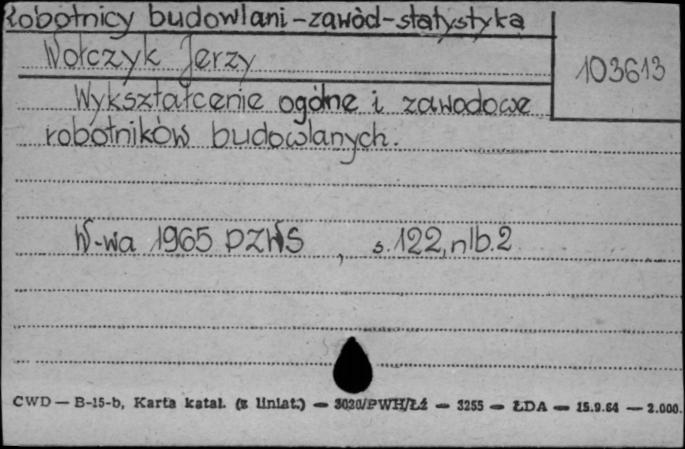 Robotnicy budowlani-zawód-statystyka
Wołczyk Jerzy
103613
Wykształcenie ogólne i zawodowe
robotników budowlanych.
W-wa 1965 PZWS, s. 122, nlb. 2
CWD — B-15-b, Karta katal. (z liniat.) — 3020/PWH/Łź — 3255 — ŁDA — 15.9.64 — 2.000.